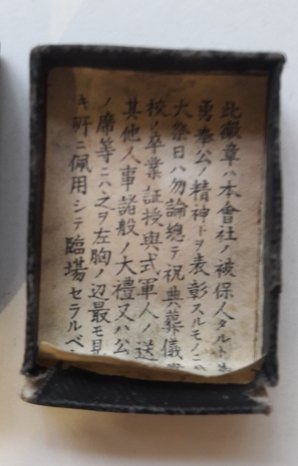 此徽章ハ本會社ノ被保人タルト
勇奉公ノ精神トヲ表彰スルモノニ
大祭日ハ勿論總テ祝典葬儀
校ノ卒業証授與式軍人ノ送
其他人事諸般ノ大禮又ハ公
ノ席等ニハ之ヲ左胸ノ辺最モ見
キ所ニ佩用シテ臨場セラルベ